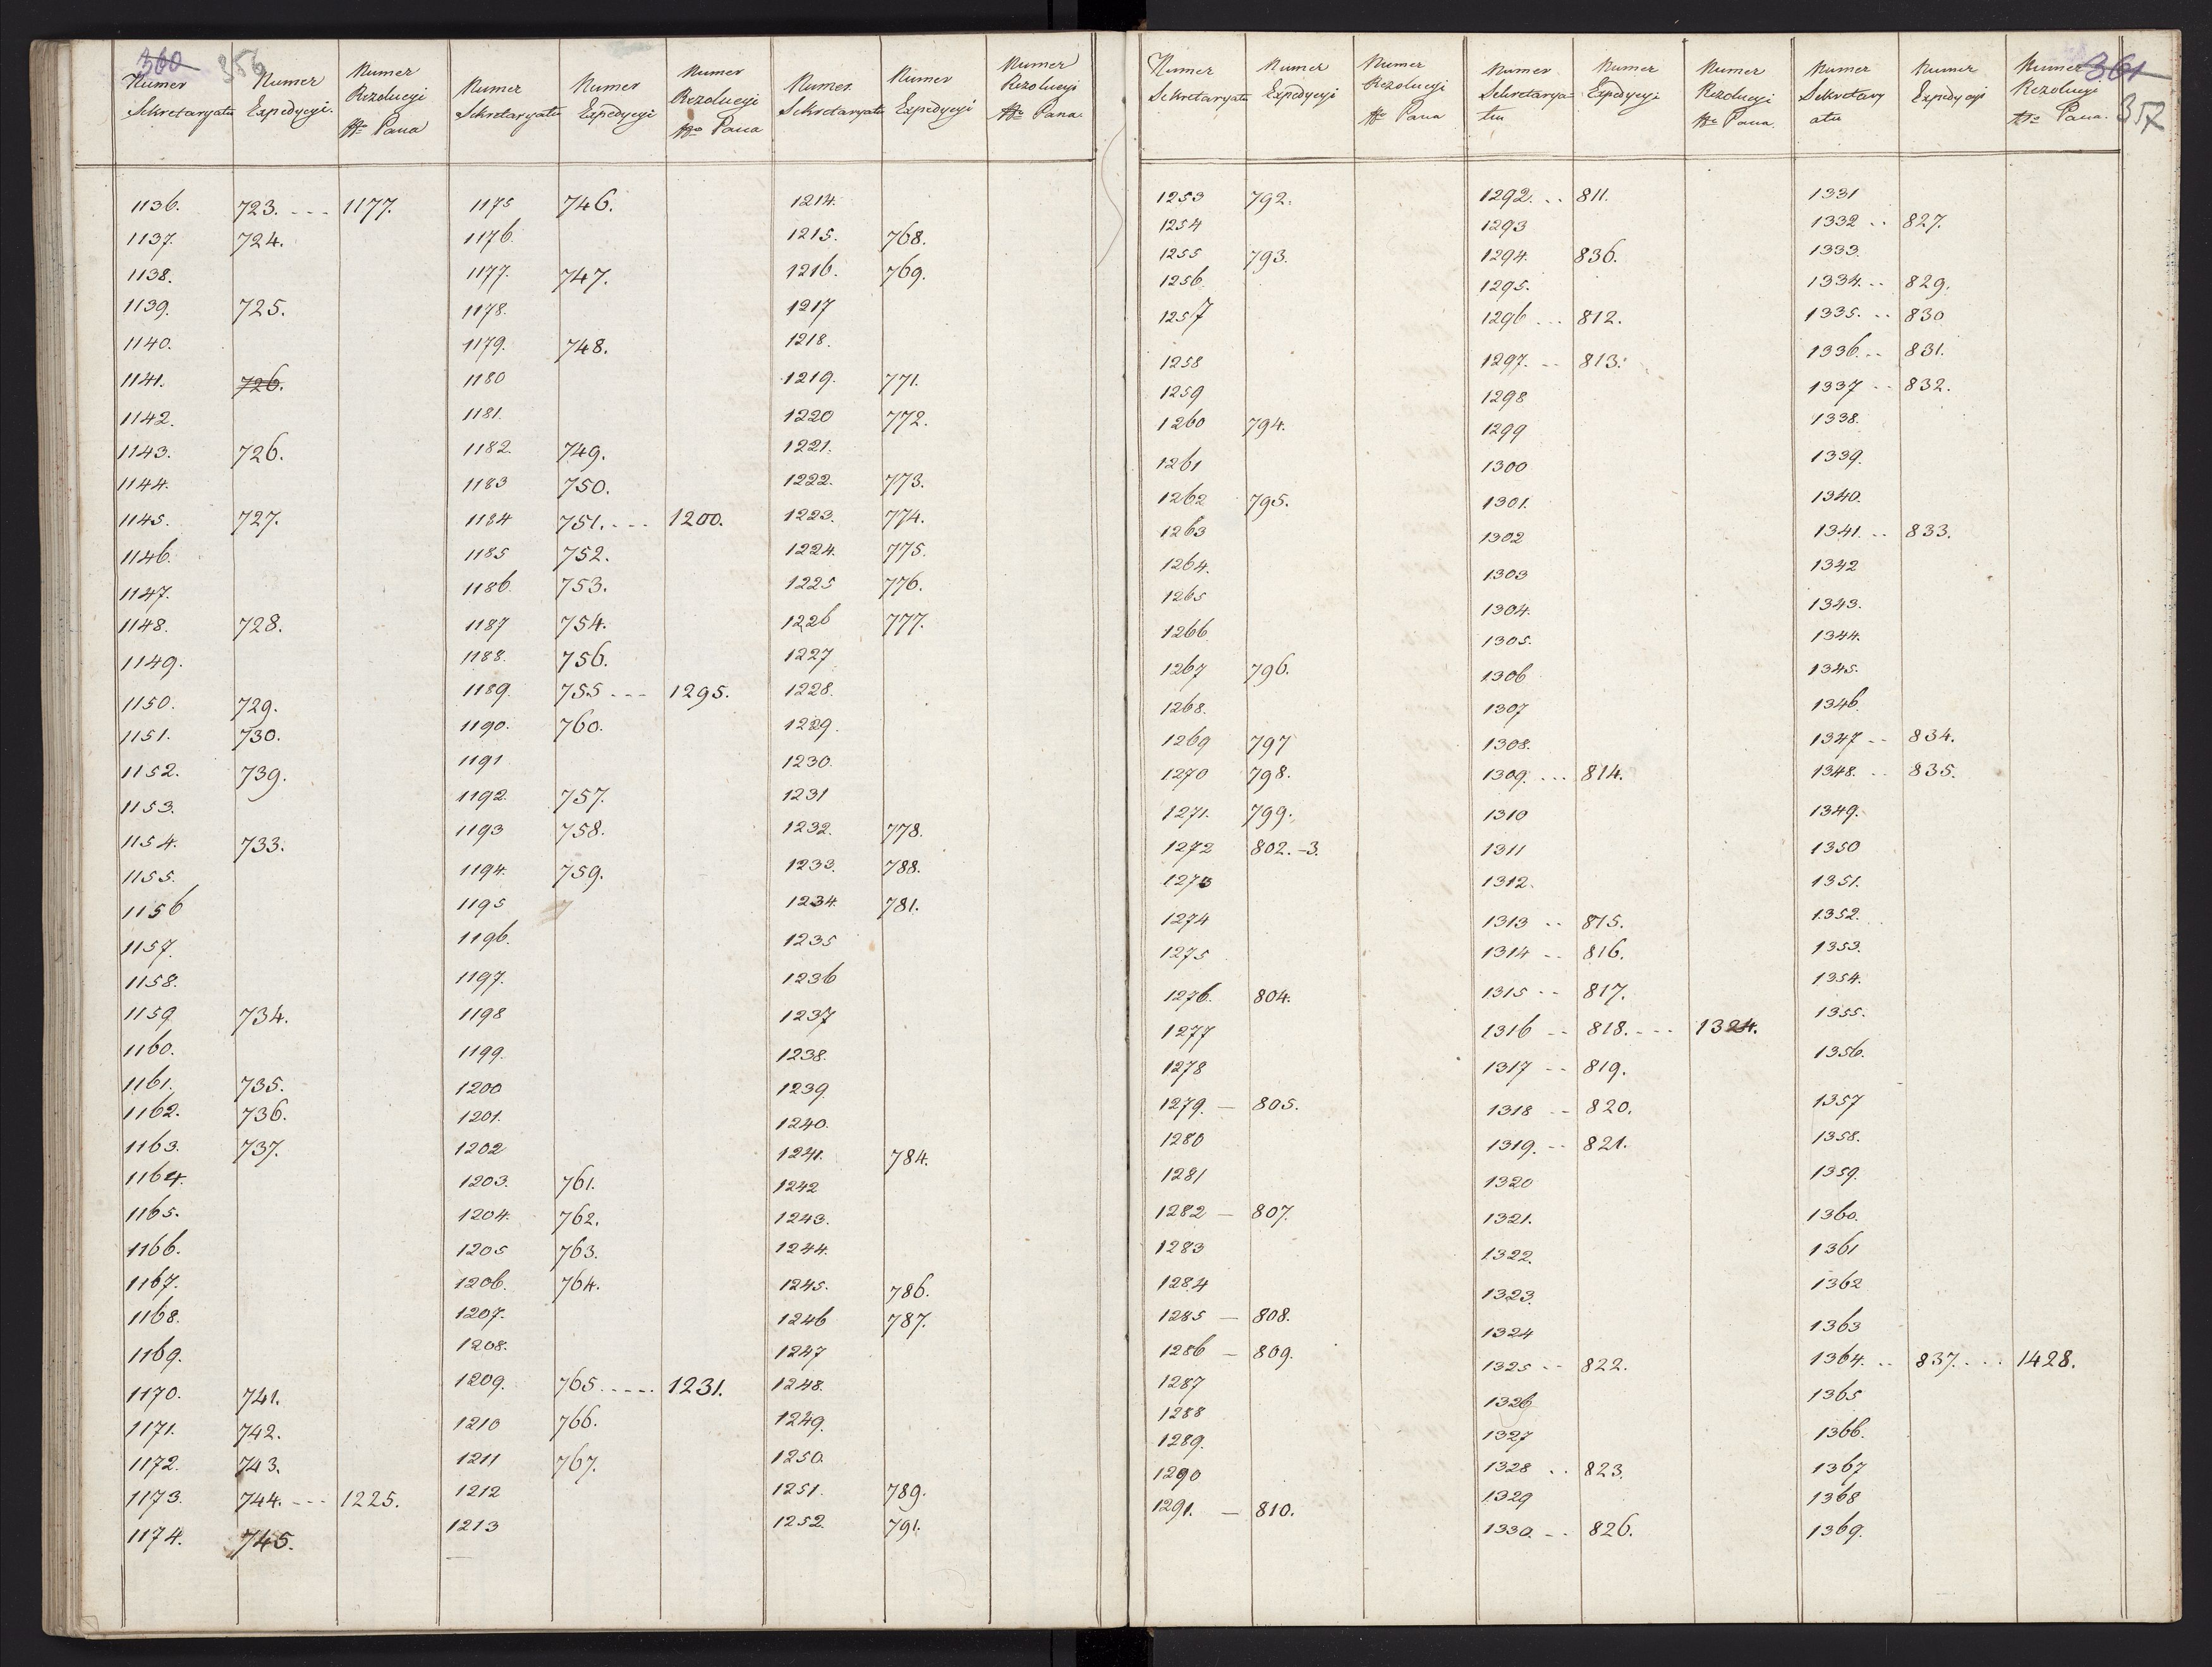 360 356
Numer Sekretaryatu Numer Expedycyi. Numer Rezolucyi Pana Numer Sekretaryatu Numer Expedycyi Numer Rezolucyi Pana Numer Sekretaryatu Numer Expedycyi Numer Rezolucyi Pana.
1136. 723. --- 1177. 1175 746. 1214.
1137. 724. 1176. 1215. 768.
1138. 1177. 747. 1216. 769.
1139. 725. 1178. 1217
1140. 1179. 748. 1218.
1141. 726. 1180 1219. 771.
1142. 1181. 1220 772.
1143. 726. 1182. 749. 1221.
1144. 1183 750. 1222. 773.
1145. 727. 1184 751. --- 1200. 1223. 774.
1146. 1185 752. 1224. 775.
1147. 1186. 753. 1225 776.
1148. 728. 1187 754. 1226 777.
1149. 1188. 756. 1227
1150. 729. 1189. 755 --- 1295. 1228.
1151. 730. 1190. 760. 1229.
1152. 739. 1191 1230.
1153. 1192. 757. 1231
1154. 733. 1193 758. 1232. 778.
1155. 1194. 759. 1233. 788.
1156 1195 1234. 781.
1157. 1196. 1235
1158. 1197. 1236
1159 734. 1198 1237
1160. 1199. 1238.
1161. 735. 1200 1239.
1162. 736. 1201. 1240.
1163. 737. 1202 1241. 784.
1164. 1203. 761. 1242
1165. 1204. 762. 1243.
1166. 1205 763. 1244.
1167. 1206. 764. 1245. 786.
1168. 1207. 1246 787.
1169. 1208. 1247
1170. 741. 1209. 765 ----- 1231. 1248.
1171. 742. 1210 766. 1249.
1172. 743. 1211 767. 1250.
1173. 744. --- 1225. 1212 1251. 789.
1174. 745. 1213 1252. 791.
361 357
Numer Sekretaryatu Numer Expedycyi Numer Rezolucyi Pana Numer Sekretarya= tu Numer Expedycyi Numer Rezolucyi Pana. Numer Sekretary atu Numer Expedycyi Numer Rezolucyi Pana.
1253 792. 1292. .. 811. 1331
1254 1293 1332 .. 827.
1255 793. 1294. 836. 1333.
1256. 1295. 1334. .. 829.
1257 1296 ... 812. 1335. .. 830
1258 1297. -- 813. 1336. .. 831.
1259 1298 1337 -- 832.
1260 794. 1299 1338.
1261 1300 1339.
1262 795. 1301. 1340.
1263 1302 1341. .. 833.
1264. 1303 1342
1265 1304. 1343.
1266. 1305. 1344.
1267 796. 1306 1345.
1268. 1307 1346.
1269 797 1308. 1347 -- 834.
1270 798. 1309. ... 814. 1348. .. 835.
1271. 799. 1310 1349.
1272 802.-3. 1311 1350
1273 1312. 1351.
1274 1313 -- 815. 1352.
1275 1314 -- 816. 1353.
1276. 804. 1315 -- 817. 1354.
1277 1316 -- 818. --- 1324. 1355.
1278 1317 -- 819. 1356.
1279. — 805. 1318 -- 820. 1357
1280 1319. -- 821. 1358.
1281 1320 1359.
1282 — 807. 1321. 1360.
1283 1322. 1361
1284 1323. 1362
1285 — 808. 1324 1363
1286 — 809. 1325 -- 822. 1364. .. 837. ... 1428.
1287 1326 1365
1288 1327 1366.
1289. 1328 .. 823. 1367
1290 1329 1368
1291. — 810. 1330. -- 826. 1369.